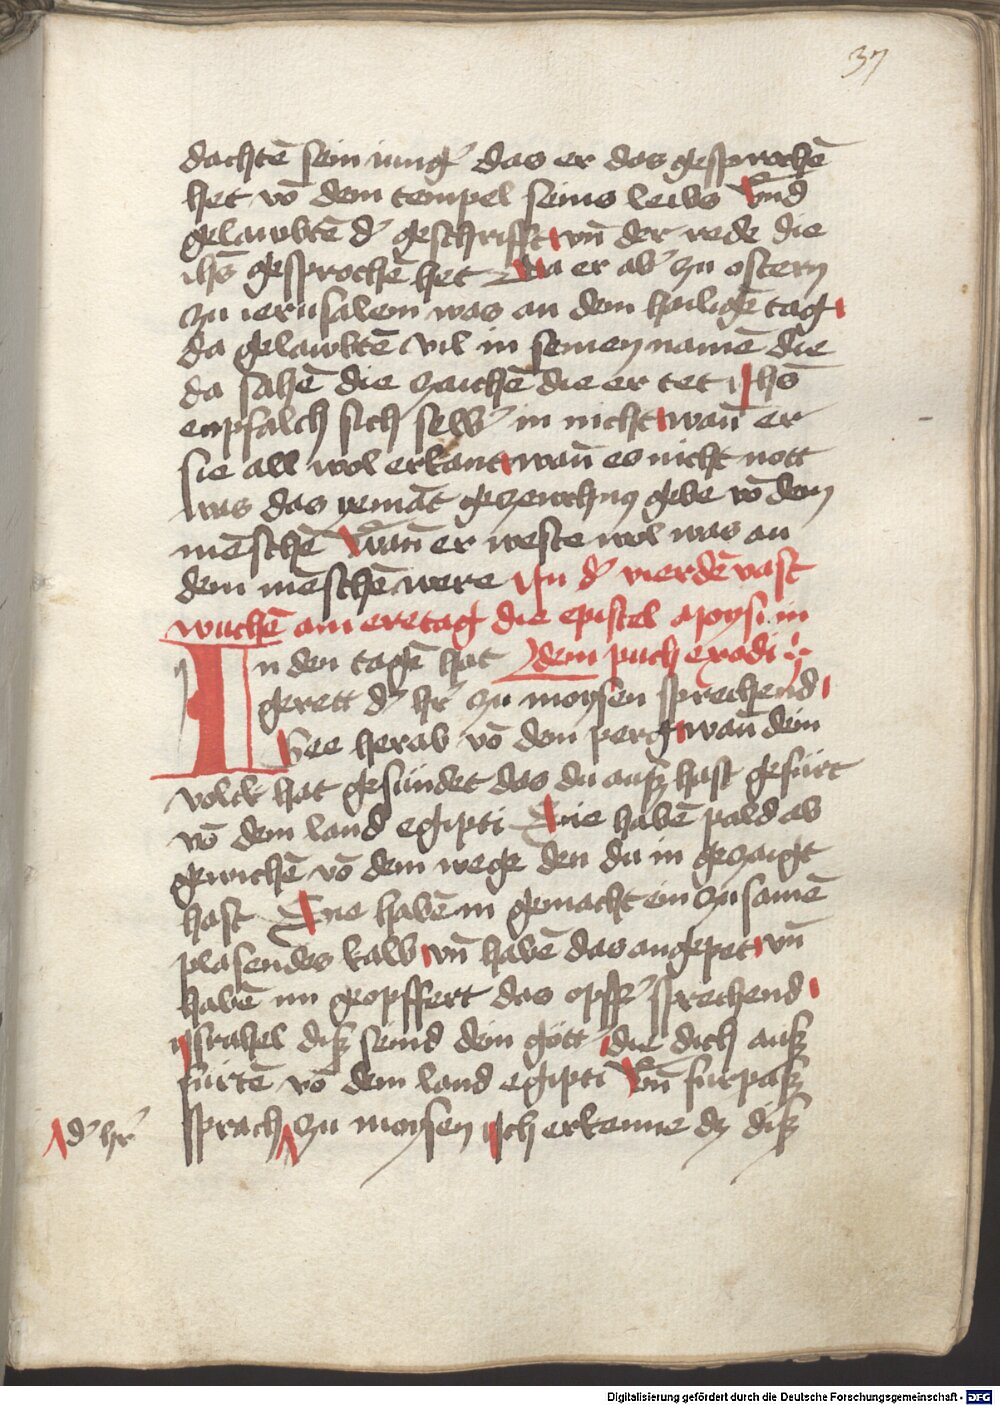 37
dachtē sein iung' das er das gesprochē
het vō dem tempel seins leibs Vnd
gelawbtē d' geschrifft vn̄ der rede die
ihs̄ gesprochē het Da er ab' zu ostern
zu ierusalem was an dem hailigē tag
da gelawbtē vil in seinen namē die
da sahē die zaichē die er tet Jhs̄
enpfalch sich selb' in nicht wan̄ er
sie all wol erkant wan̄ es nicht nott
was das yemāt gezewchnus gebe vō dem
mēschē Wan̄ er weste wol was an
dem mēschē were Jn d' vierdē vast
wuchē am eretag die epistel Moysi in
dem puch exodi
In den tagē hat
gerett d' hr' zu moysen sprechend
Gee herab vō dem perg wan̄ dein
volck hat gesündet das du auß hast gefürt
vō dem land egipti Sie habē pald ab
gewichē vō dem wege den du in gezaigt
hast Sie habē in gemacht ein zusamē
plasendes kalb vn̄ habē das angepet vn̄
habē im geopffert das opff' sprechend
Jsrahel diß seind dein gött die dich auß
fürtē vō dem land egipti Vn̄ fürpaß
sprach zu moysen Jch erkenne dz diß
d' hr'
Digitalisierung gefördert durch die Deutsche Forschungsgemeinschaft - DFG